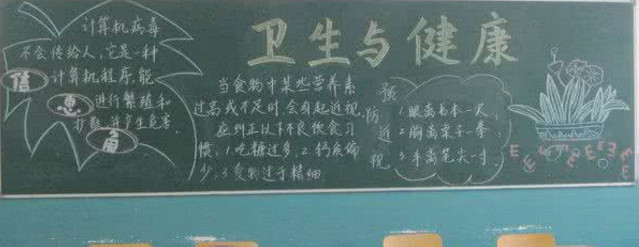 卫生与健康
计算机病毒
不会传给人，它是一种
计算机程序，能
进行繁殖和
扩散，并产生危害。
信
息
角
当食物中某些营养素
过高或不足时，会引起近视，
应纠正以下不良饮食习
惯：1.吃糖过多，2.钙质偏
少，3.食物过于精细
预
防
近
视
1.眼离书本一尺；
2.胸离桌子一拳；
3.手离笔尖一寸。
E E E E E E E